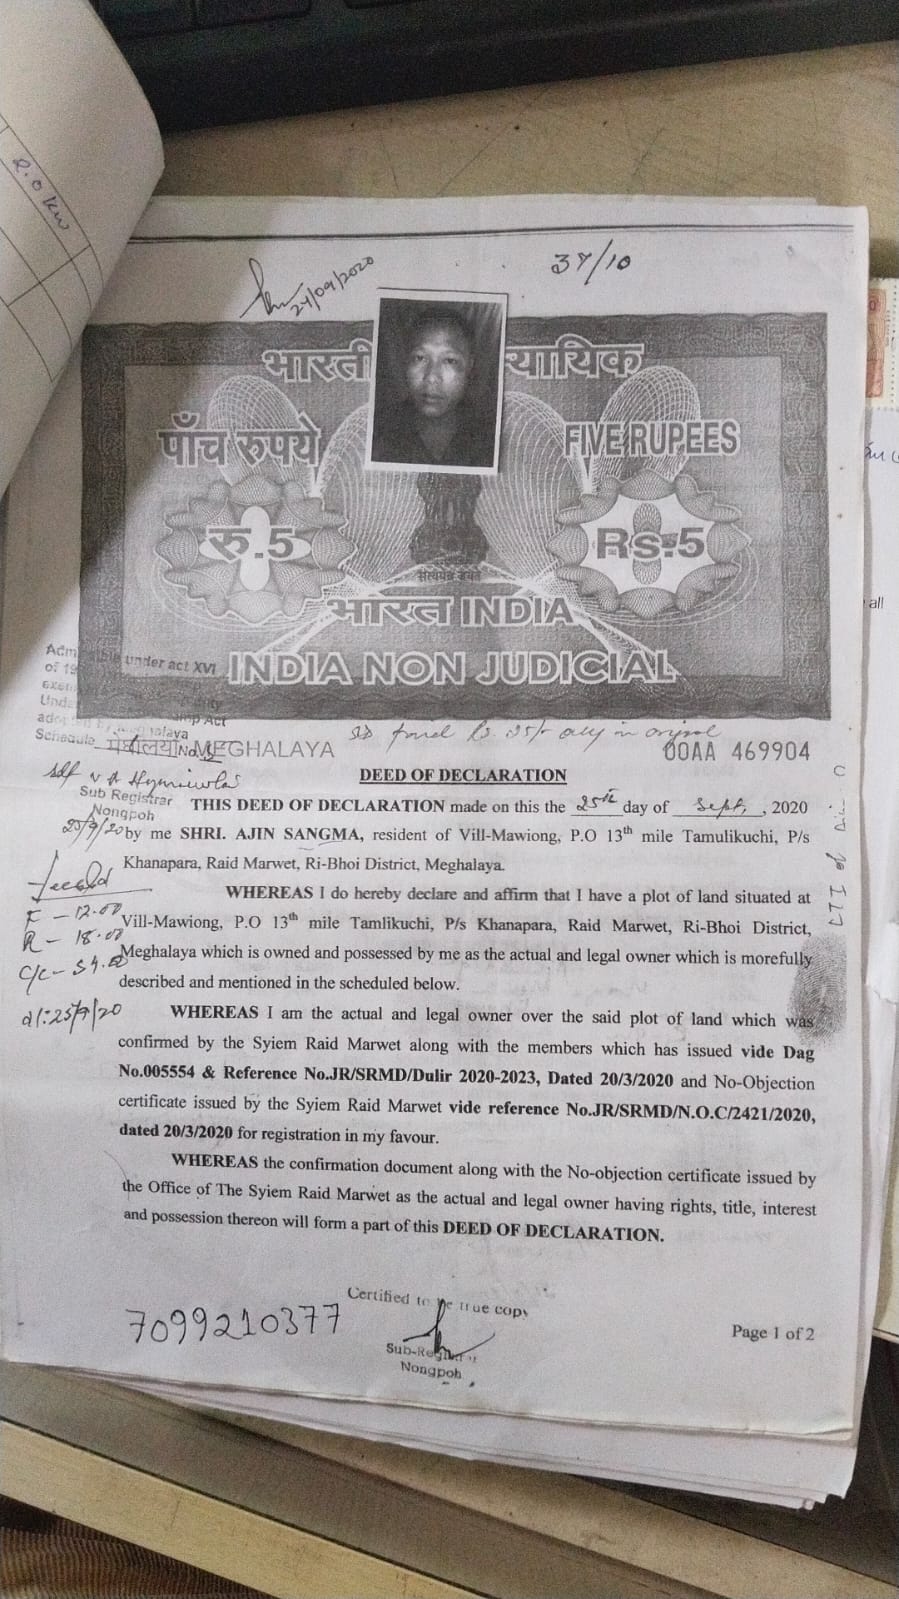 2.0 kw
24/09/2020
37/10
भारती
न्यायिक
पाँच रुपये
FIVE RUPEES
रु.5
Rs.5
सत्यमेव जयते
भारत INDIA
INDIA NON JUDICIAL
under act XVI
Schedule
मेघालय MEGHALAYA
00AA 469904
DEED OF DECLARATION
Sub Registrar
Nongpoh
25/9/20
THIS DEED OF DECLARATION made on this the 25th day of Sept, , 2020
by me SHRI. AJIN SANGMA, resident of Vill-Mawiong, P.O 13th mile Tamulikuchi, P/s
Khanapara, Raid Marwet, Ri-Bhoi District, Meghalaya.
WHEREAS I do hereby declare and affirm that I have a plot of land situated at
Vill-Mawiong, P.O 13th mile Tamlikuchi, P/s Khanapara, Raid Marwet, Ri-Bhoi District,
Meghalaya which is owned and possessed by me as the actual and legal owner which is morefully
described and mentioned in the scheduled below.
F - 12.00
R - 18.00
C/C - 54.00
dt: 25/9/20
WHEREAS I am the actual and legal owner over the said plot of land which was
confirmed by the Syiem Raid Marwet along with the members which has issued vide Dag
No.005554 & Reference No.JR/SRMD/Dulir 2020-2023, Dated 20/3/2020 and No-Objection
certificate issued by the Syiem Raid Marwet vide reference No.JR/SRMD/N.O.C/2421/2020,
dated 20/3/2020 for registration in my favour.
WHEREAS the confirmation document along with the No-objection certificate issued by
the Office of The Syiem Raid Marwet as the actual and legal owner having rights, title, interest
and possession thereon will form a part of this DEED OF DECLARATION.
Certified to be true copy
7099210377
Sub-Registrar
Nongpoh
Page 1 of 2
all